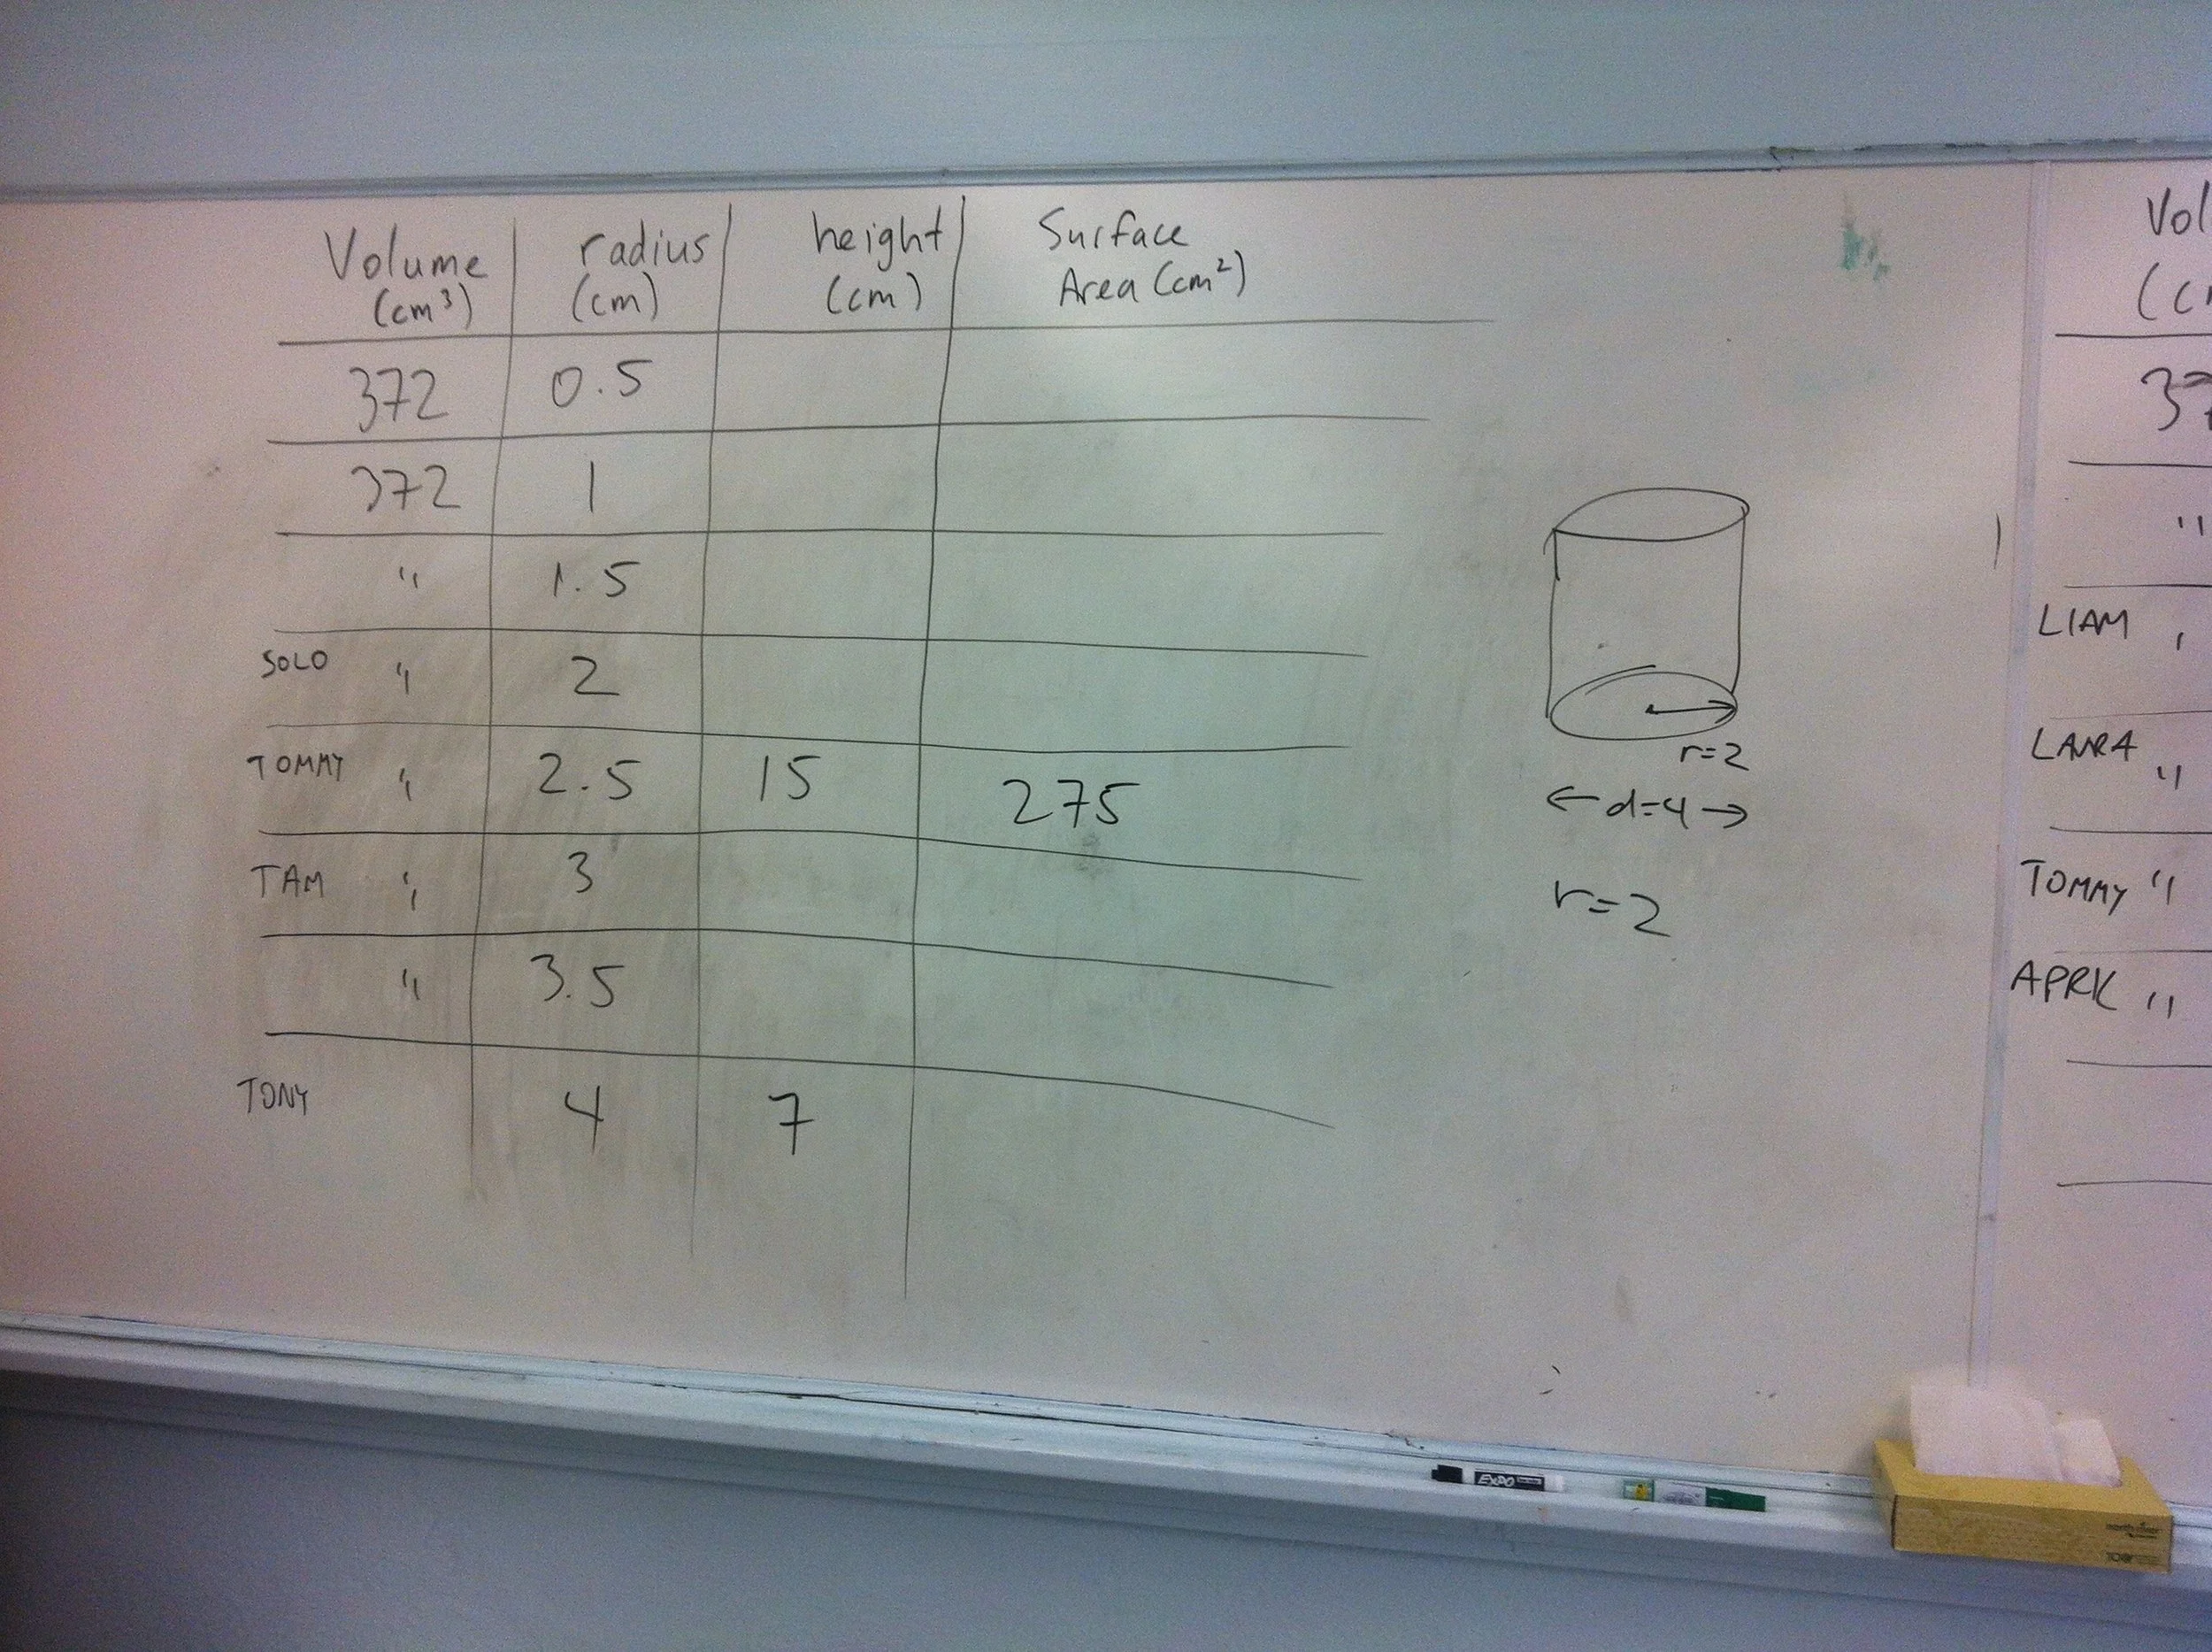 Volume (cm³) radius (cm) height (cm) Surface Area (cm²)
372 0.5
372 1
" 1.5
SOLO " 2
TOMMY " 2.5 15 275
TAM " 3
" 3.5
TONY 4 7
r=2
← d=4 →
r=2
Vol
(c
37
"
LIAM
LAURA "
TOMMY "
APRK "
EXPO